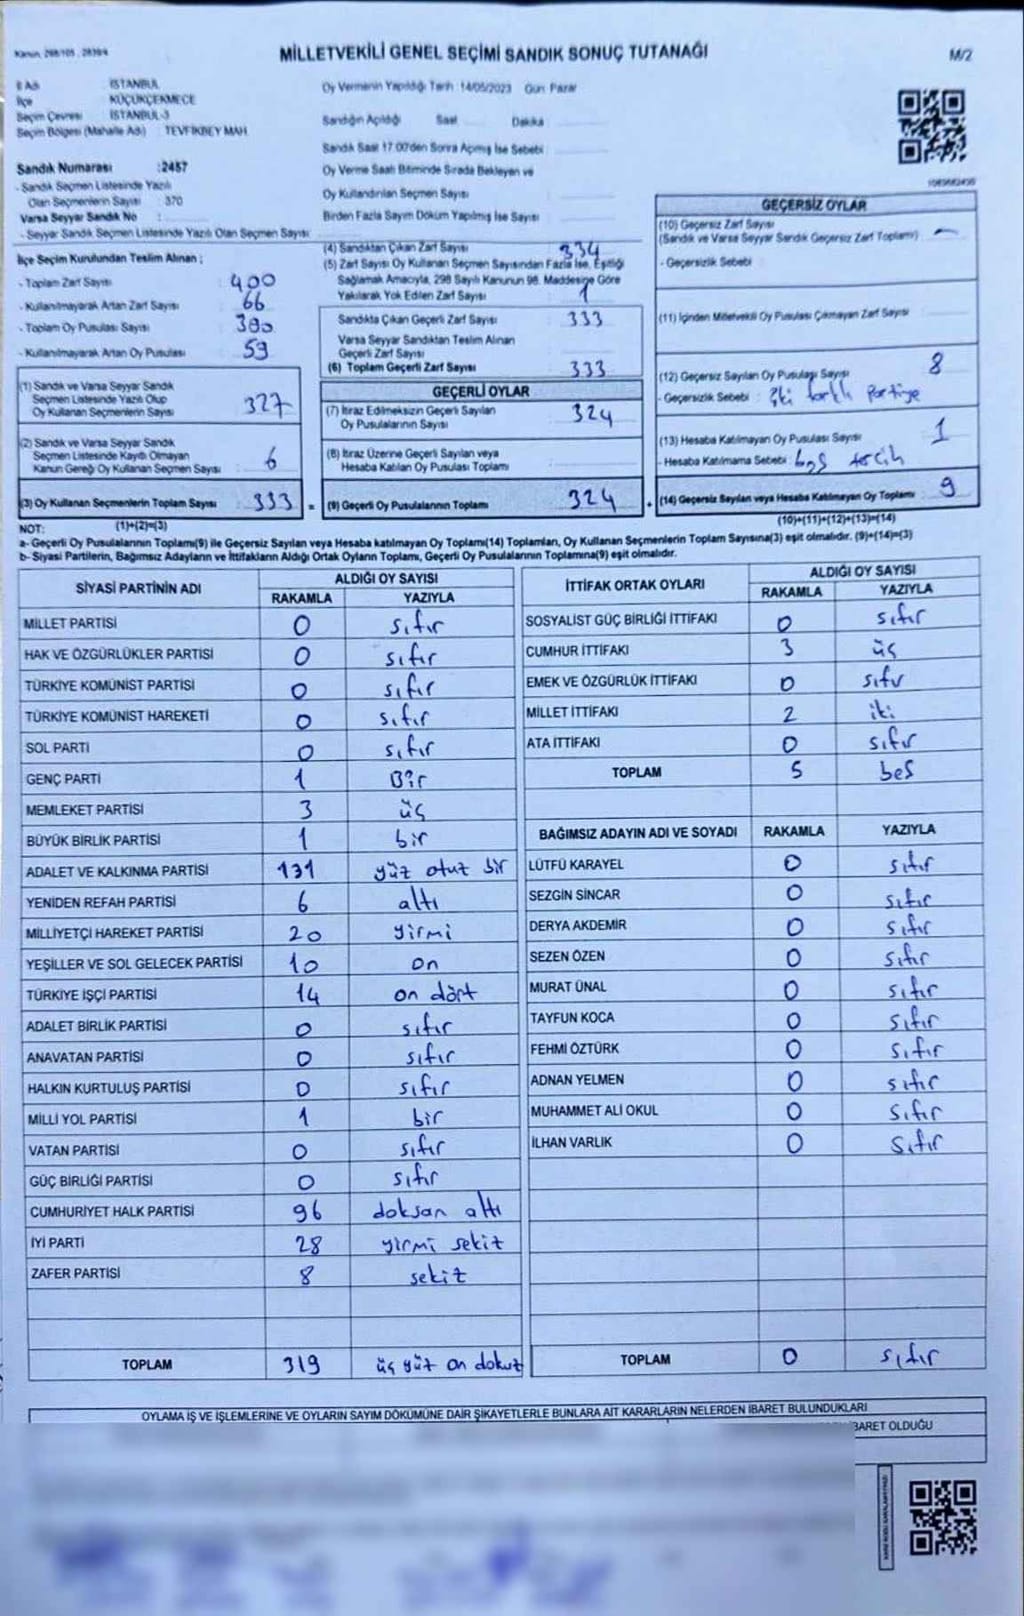 Kanun, 298/105 , 2839/4
MİLLETVEKİLİ GENEL SEÇİMİ SANDIK SONUÇ TUTANAĞI
M/2
İl Adı : İSTANBUL
İlçe : KÜÇÜKÇEKMECE
Seçim Çevresi : İSTANBUL-3
Seçim Bölgesi (Mahalle Adı) : TEVFİKBEY MAH.
Sandık Numarası :2457
- Sandık Seçmen Listesinde Yazılı
Olan Seçmenlerin Sayısı : 370
Varsa Seyyar Sandık No :
- Seyyar Sandık Seçmen Listesinde Yazılı Olan Seçmen Sayısı :
Oy Vermenin Yapıldığı Tarih :14/05/2023 Gün: Pazar
Sandığın Açıldığı Saat Dakika
Sandık Saat 17:00'den Sonra Açımış İse Sebebi :
Oy Verme Saati Bitiminde Sırada Bekleyen ve
Oy Kullandırılan Seçmen Sayısı
Birden Fazla Sayım Döküm Yapılmış İse Sayısı :
İlçe Seçim Kurulundan Teslim Alınan ;
- Toplam Zarf Sayısı : 400
- Kullanılmayarak Artan Zarf Sayısı : 66
- Toplam Oy Pusulası Sayısı : 380
- Kullanılmayarak Artan Oy Pusulası : 59
(1) Sandık ve Varsa Seyyar Sandık
Seçmen Listesinde Yazılı Olup
Oy Kullanan Seçmenlerin Sayısı : 327
(2) Sandık ve Varsa Seyyar Sandık
Seçmen Listesinde Kayıtlı Olmayan
Kanun Gereği Oy Kullanan Seçmen Sayısı : 6
(3) Oy Kullanan Seçmenlerin Toplam Sayısı : 333 =
(4) Sandıktan Çıkan Zarf Sayısı : 334
(5) Zarf Sayısı Oy Kullanan Seçmen Sayısından Fazla İse, Eşitliği
Sağlamak Amacıyla, 298 Sayılı Kanunun 98. Maddesine Göre
Yakılarak Yok Edilen Zarf Sayısı : 1
Sandıkta Çıkan Geçerli Zarf Sayısı : 333
Varsa Seyyar Sandıktan Teslim Alınan
Geçerli Zarf Sayısı
(6) Toplam Geçerli Zarf Sayısı : 333
GEÇERLİ OYLAR
(7) İtiraz Edilmeksizin Geçerli Sayılan
Oy Pusulalarının Sayısı : 324
(8) İtiraz Üzerine Geçerli Sayılan veya
Hesaba Katılan Oy Pusulası Toplamı :
(9) Geçerli Oy Pusulalarının Toplamı : 324 +
GEÇERSİZ OYLAR
(10) Geçersiz Zarf Sayısı
(Sandık ve Varsa Seyyar Sandık Geçersiz Zarf Toplamı) : -
- Geçersizlik Sebebi :
(11) İçinden Milletvekili Oy Pusulası Çıkmayan Zarf Sayısı :
(12) Geçersiz Sayılan Oy Pusulası Sayısı : 8
- Geçersizlik Sebebi : İki farklı Partiye
(13) Hesaba Katılmayan Oy Pusulası Sayısı : 1
- Hesaba Katılmama Sebebi : boş tercih
(14) Geçersiz Sayılan veya Hesaba Katılmayan Oy Toplamı : 9
NOT: (1)+(2)=(3) (10)+(11)+(12)+(13)=(14)
a- Geçerli Oy Pusulalarının Toplamı(9) ile Geçersiz Sayılan veya Hesaba katılmayan Oy Toplamı(14) Toplamları, Oy Kullanan Seçmenlerin Toplam Sayısına(3) eşit olmalıdır. (9)+(14)=(3)
b- Siyasi Partilerin, Bağımsız Adayların ve İttifakların Aldığı Ortak Oyların Toplamı, Geçerli Oy Pusulalarının Toplamına(9) eşit olmalıdır.
SİYASİ PARTİNİN ADI ALDIĞI OY SAYISI
RAKAMLA YAZIYLA
MİLLET PARTİSİ 0 sıfır
HAK VE ÖZGÜRLÜKLER PARTİSİ 0 sıfır
TÜRKİYE KOMÜNİST PARTİSİ 0 sıfır
TÜRKİYE KOMÜNİST HAREKETİ 0 sıfır
SOL PARTİ 0 sıfır
GENÇ PARTİ 1 Bir
MEMLEKET PARTİSİ 3 üç
BÜYÜK BİRLİK PARTİSİ 1 bir
ADALET VE KALKINMA PARTİSİ 131 yüz otuz bir
YENİDEN REFAH PARTİSİ 6 altı
MİLLİYETÇİ HAREKET PARTİSİ 20 yirmi
YEŞİLLER VE SOL GELECEK PARTİSİ 10 on
TÜRKİYE İŞÇİ PARTİSİ 14 on dört
ADALET BİRLİK PARTİSİ 0 sıfır
ANAVATAN PARTİSİ 0 sıfır
HALKIN KURTULUŞ PARTİSİ 0 sıfır
MİLLİ YOL PARTİSİ 1 bir
VATAN PARTİSİ 0 sıfır
GÜÇ BİRLİĞİ PARTİSİ 0 sıfır
CUMHURİYET HALK PARTİSİ 96 doksan altı
İYİ PARTİ 28 yirmi sekiz
ZAFER PARTİSİ 8 sekiz
TOPLAM 319 üç yüz on dokuz
İTTİFAK ORTAK OYLARI ALDIĞI OY SAYISI
RAKAMLA YAZIYLA
SOSYALİST GÜÇ BİRLİĞİ İTTİFAKI 0 sıfır
CUMHUR İTTİFAKI 3 üç
EMEK VE ÖZGÜRLÜK İTTİFAKI 0 sıfır
MİLLET İTTİFAKI 2 iki
ATA İTTİFAKI 0 sıfır
TOPLAM 5 beş
BAĞIMSIZ ADAYIN ADI VE SOYADI RAKAMLA YAZIYLA
LÜTFÜ KARAYEL 0 sıfır
SEZGİN SİNCAR 0 sıfır
DERYA AKDEMİR 0 sıfır
SEZEN ÖZEN 0 sıfır
MURAT ÜNAL 0 sıfır
TAYFUN KOCA 0 sıfır
FEHMİ ÖZTÜRK 0 sıfır
ADNAN YELMEN 0 sıfır
MUHAMMET ALİ OKUL 0 sıfır
İLHAN VARLIK 0 sıfır
TOPLAM 0 sıfır
OYLAMA İŞ VE İŞLEMLERİNE VE OYLARIN SAYIM DÖKÜMÜNE DAİR ŞİKAYETLERLE BUNLARA AİT KARARLARIN NELERDEN İBARET BULUNDUKLARI
İBARET OLDUĞU